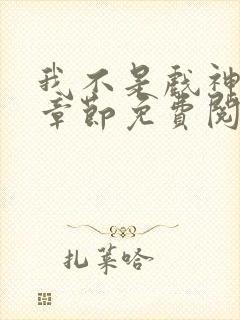 我不是戲神
章節免費閱
扎萊哈